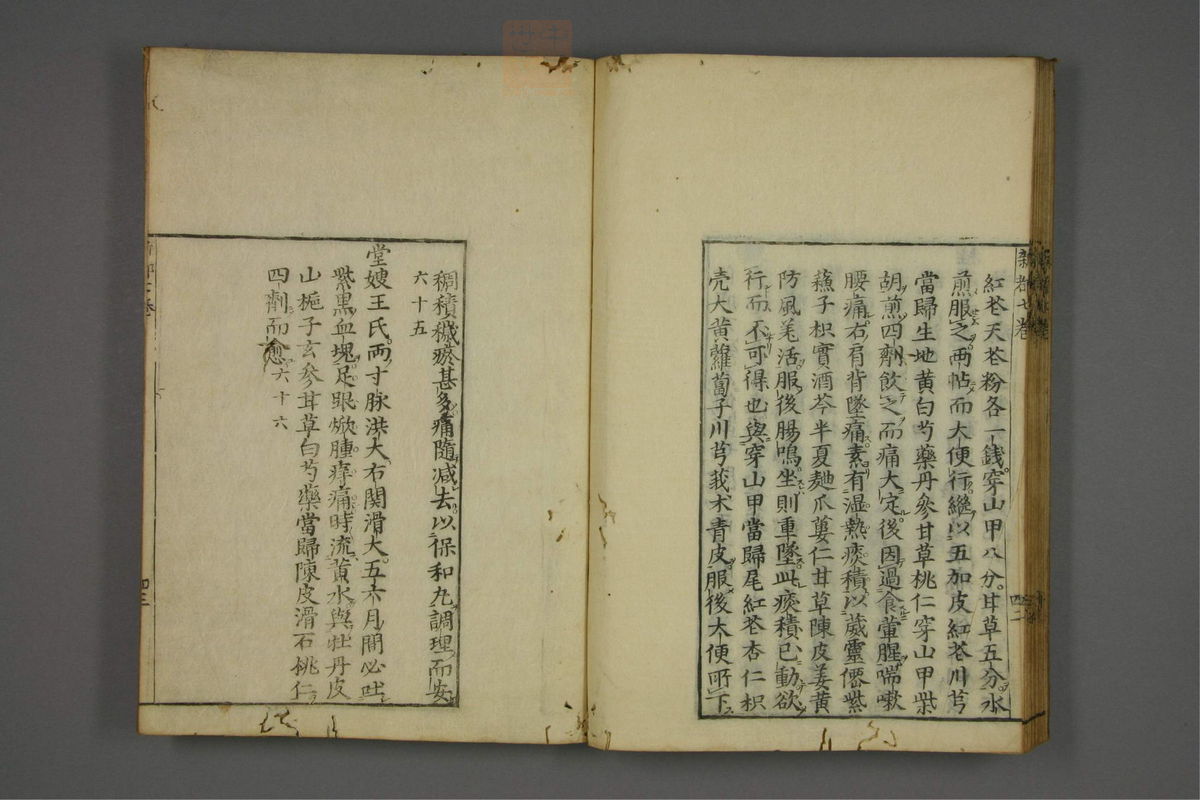 紅花天花粉各一銭穿山甲八分甘草五分水
煎服之兩帖而大便行繼以五加皮紅花川芎
當歸生地黄白芍藥丹參甘草桃仁穿山甲柴
胡煎四劑飲之而痛大定後因過食葷腥喘嗽
腰痛右肩背墜痛素有湿熱痰積以葳靈僊紫
蘓子枳實酒芩半夏麯瓜蔞仁甘草陳皮姜黄
防風羌活服後腸鳴坐則重墜此痰積已動欲
行而不可得也與穿山甲當歸尾紅花杏仁枳
壳大黄蘿蔔子川芎莪朮青皮服後大便所下
稠積穢瘀甚多痛隨减去以保和丸調理而安
六十五
堂嫂王氏兩寸脉洪大右関滑大五六月間必吐
紫黒血塊足跟焮腫痒痛時流黄水與牡丹皮
山梔子玄参甘草白芍藥當歸陳皮滑石桃仁
四劑而愈六十六